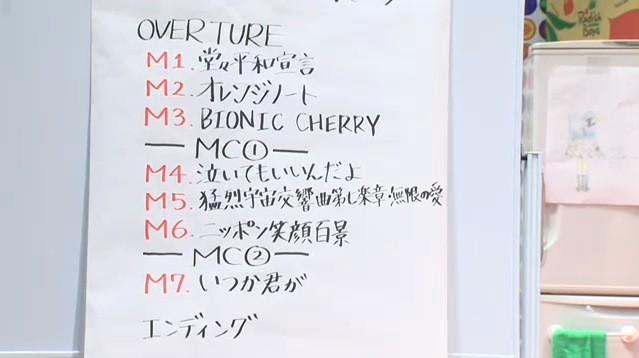 OVERTURE
M1. 堂々平和宣言
M2. オレンジノート
M3. BIONIC CHERRY
— MC① —
M4. 泣いてもいいんだよ
M5. 猛烈宇宙交響曲第七楽章・無限の愛
M6. ニッポン笑顔百景
— MC② —
M7. いつか君が
エンディング
Radish
Boya